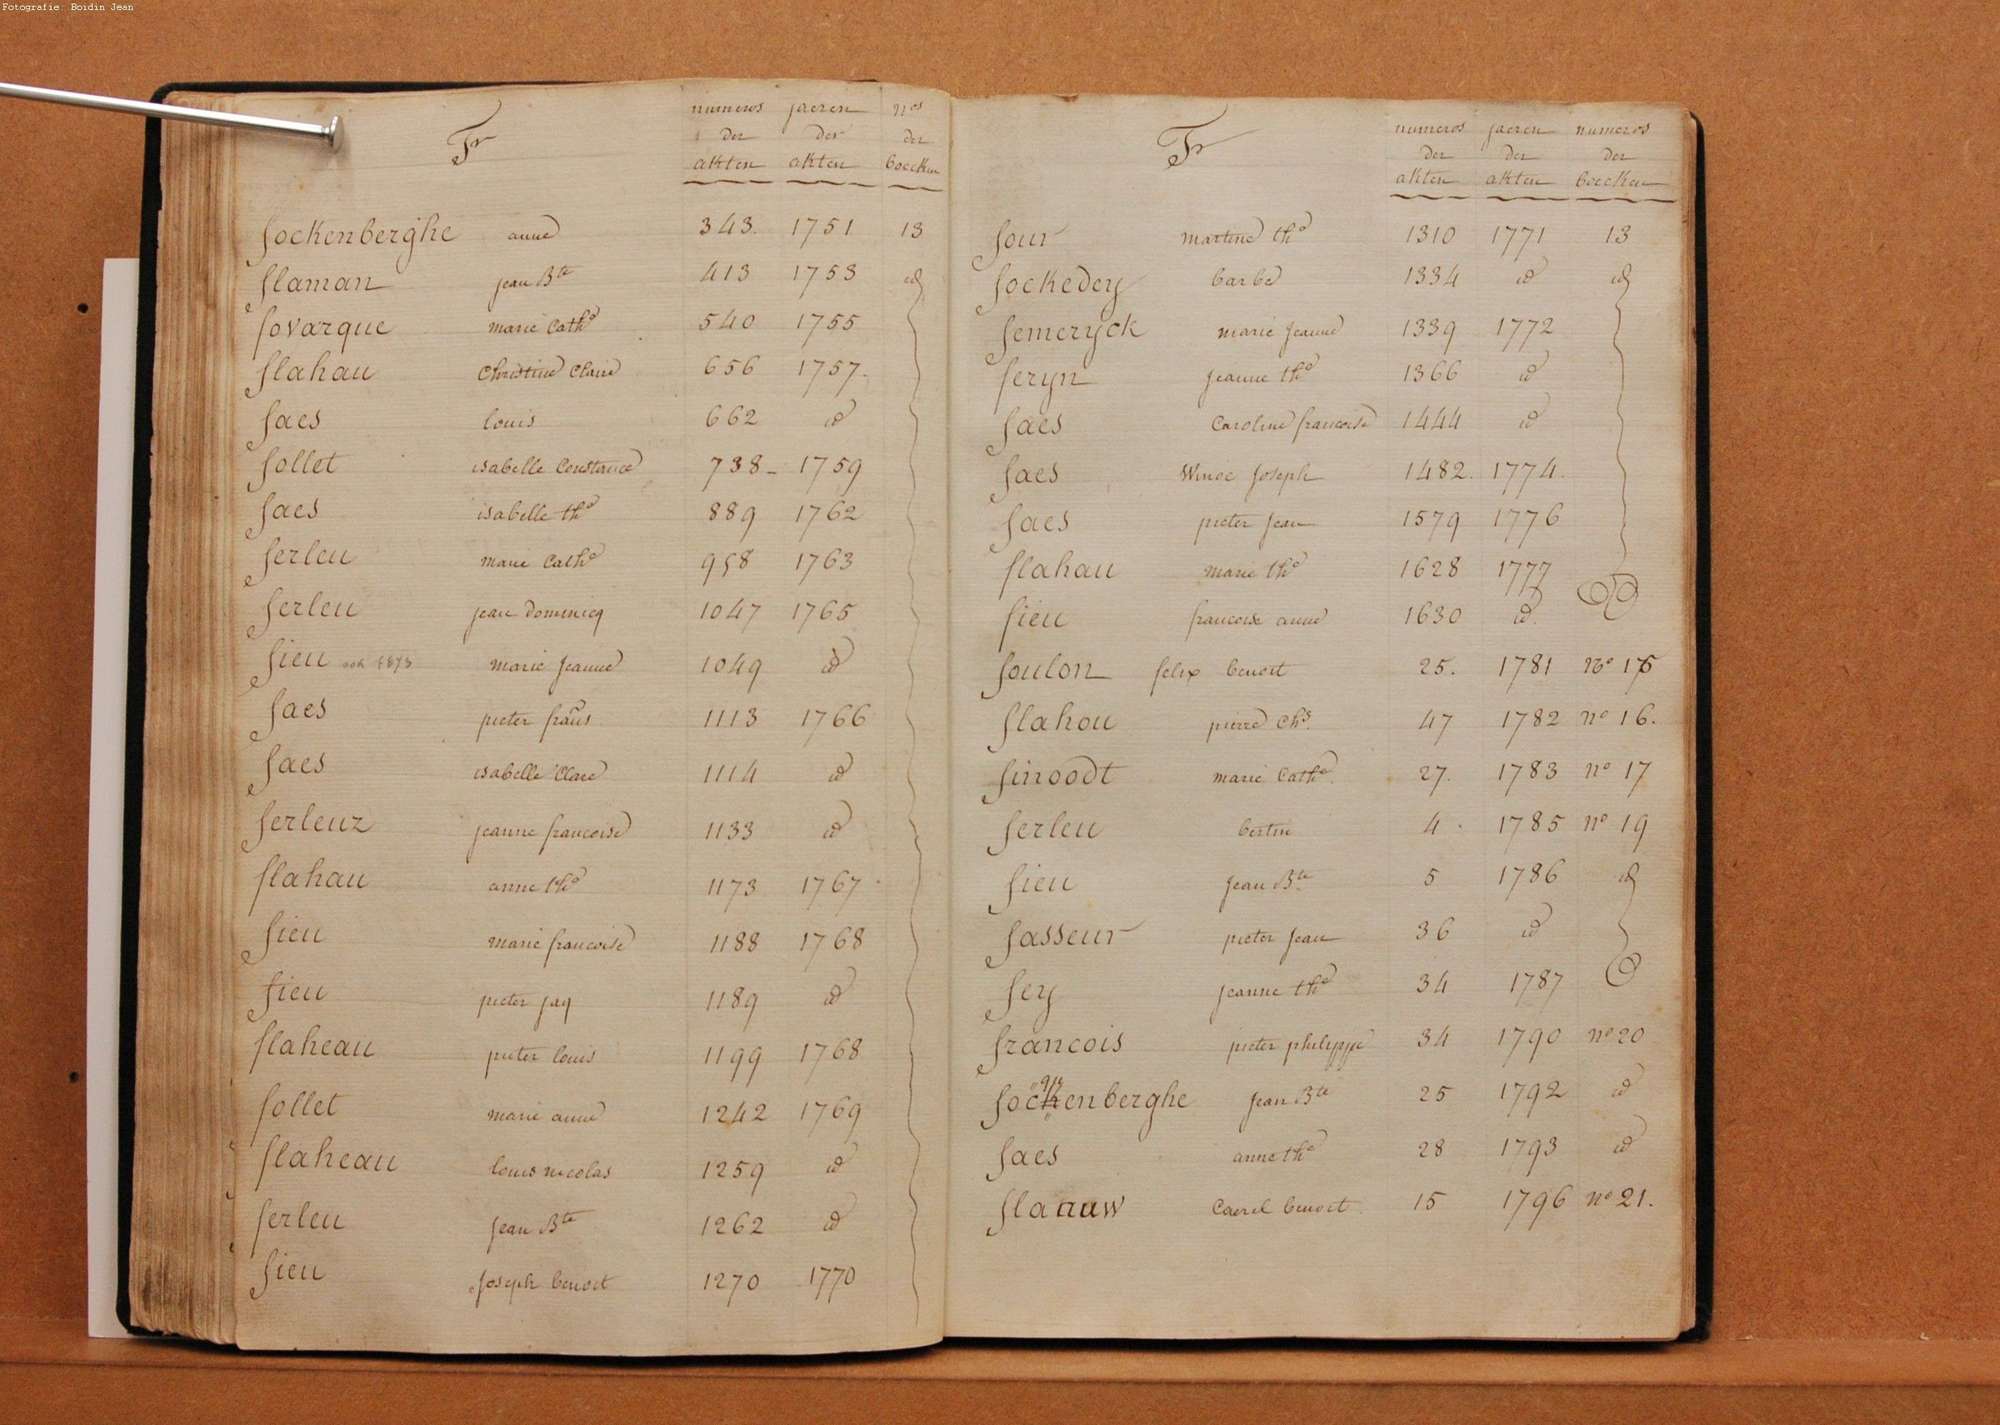 Fotografie: Boidin Jean
F
numeros jaeren nos
der der der
akten akten boecken
fockenberghe anne 343. 1751 13
flaman jean Bte 413 1753 id
fovarque marie Cathe 540 1755
flahau Christine Claire 656 1757.
faes louis 662 id
follet isabelle Constance 738_ 1759
faes isabelle the 889 1762
ferleu marie Cathe 958 1763
ferleu jean dominicq 1047 1765
fieu ook 1873 marie jeanne 1049 id
faes pieter frans 1113 1766
faes isabelle Clare 1114 id
ferleuz jeanne francoise 1133 id
flahau anne the 1173 1767
fieu marie francoise 1188 1768
fieu pieter jaq 1189 id
flaheau pieter louis 1199 1768
follet marie anne 1242 1769
flaheau louis nicolas 1259 id
ferleu jean Bte 1262 id
fieu joseph benoit 1270 1770
F
numeros jaeren numeros
der der der
akten akten boecken
four martine the 1310 1771 13
fockedey barbe 1334 id id
femeryck marie jeanne 1339 1772
feryn jeanne the 1366 id
faes Caroline francoise 1444 id
faes Winoc joseph 1482. 1774.
faes pieter jean 1579 1776
flahau marie the 1628 1777
fieu francoise anne 1630 id.
foulon felix benoit 25. 1781 no 15
flahou pierre Chs. 47 1782 no 16.
finoodt marie Cathe. 27. 1783 no 17
ferleu bertin 4. 1785 no 19
fieu jean Bte 5 1786 id
fasseur pieter jean 36 id
fey jeanne the 34 1787
francois pieter philippe 34 1790 no 20
fockenberghe jean Bte 25 1792 id
faes anne the 28 1793 id
flaauw Caerel benoit. 15 1796 no 21.